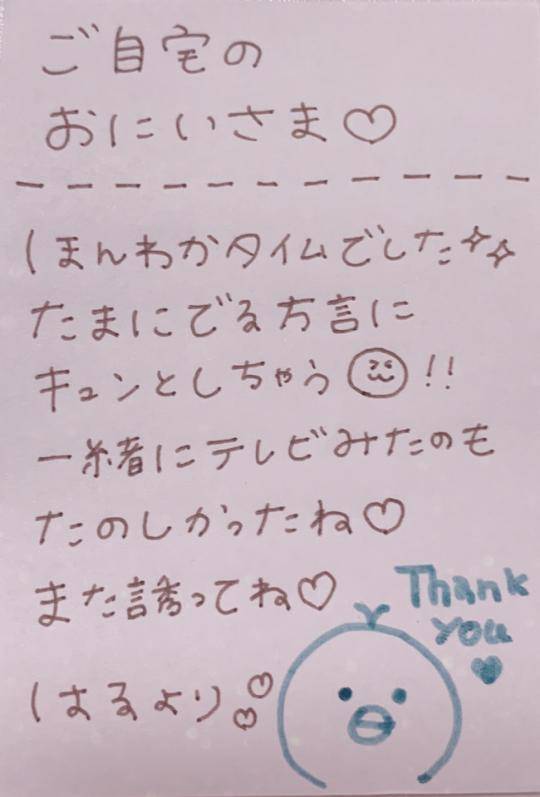 ご自宅の
おにいさま♡
ほんわかタイムでした✧✧
たまにでる方言に
キュンとしちゃう!!
一緒にテレビみたのも
たのしかったね♡
また誘ってね♡
Thank
you♥
はるより♡♡